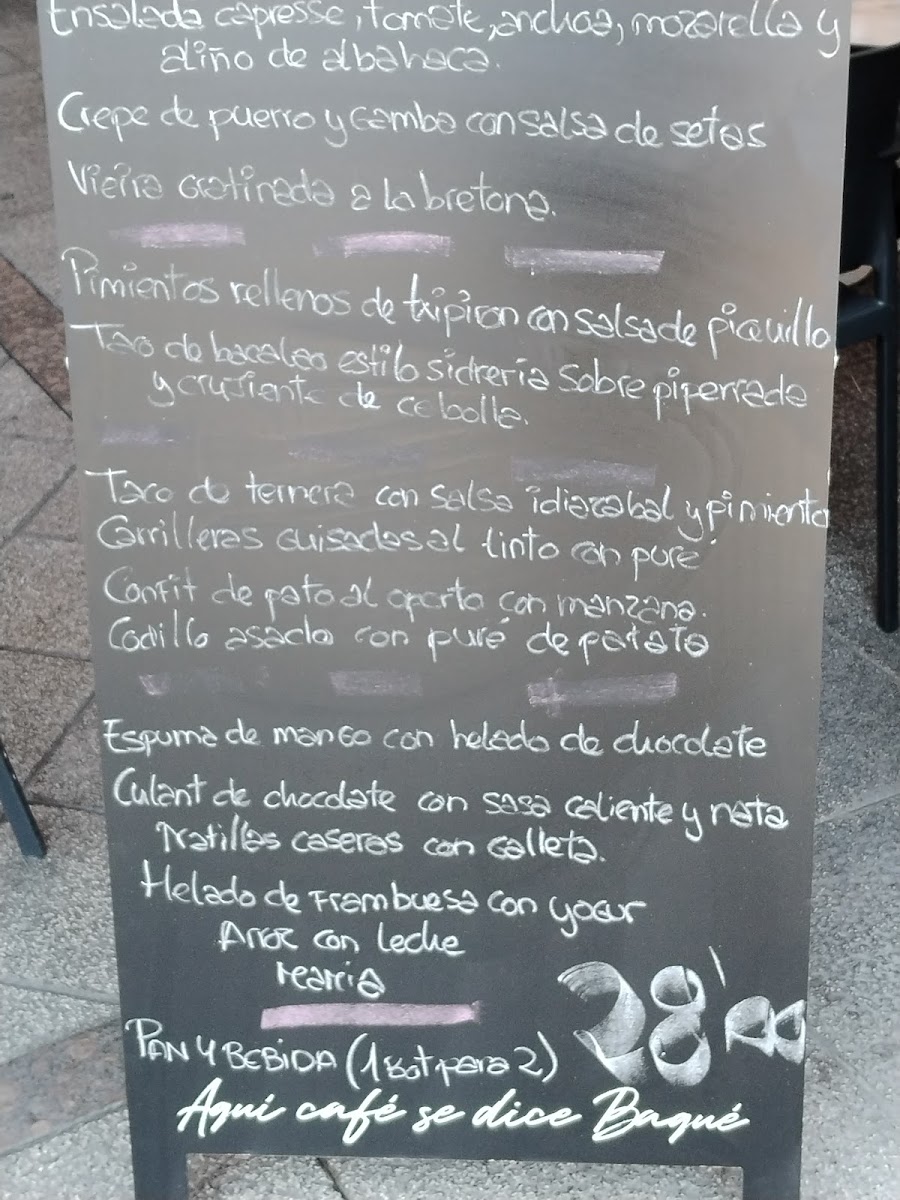 Ensalada capresse, tomate, anchoa, mozarella y
aliño de albahaca.
Crepe de puerro y gamba con salsa de setas
Vieira gratinada a la bretona.
Pimientos rellenos de txipiron con salsa de piquillo
Taco de bacalao estilo sidreria sobre piperrada
y crujiente de cebolla.
Taco de ternera con salsa idiazabal y pimiento
Carrilleras guisadas al tinto con puré
Confit de pato al oporto con manzana.
Codillo asado con puré de patata
Espuma de mango con helado de chocolate
Culant de chocolate con sasa caliente y nata
Natillas caseras con galleta.
Helado de Frambuesa con yogur
Arroz con leche
PAN Y BEBIDA (1 bot para 2)
28'88
Aquí café se dice Baqué